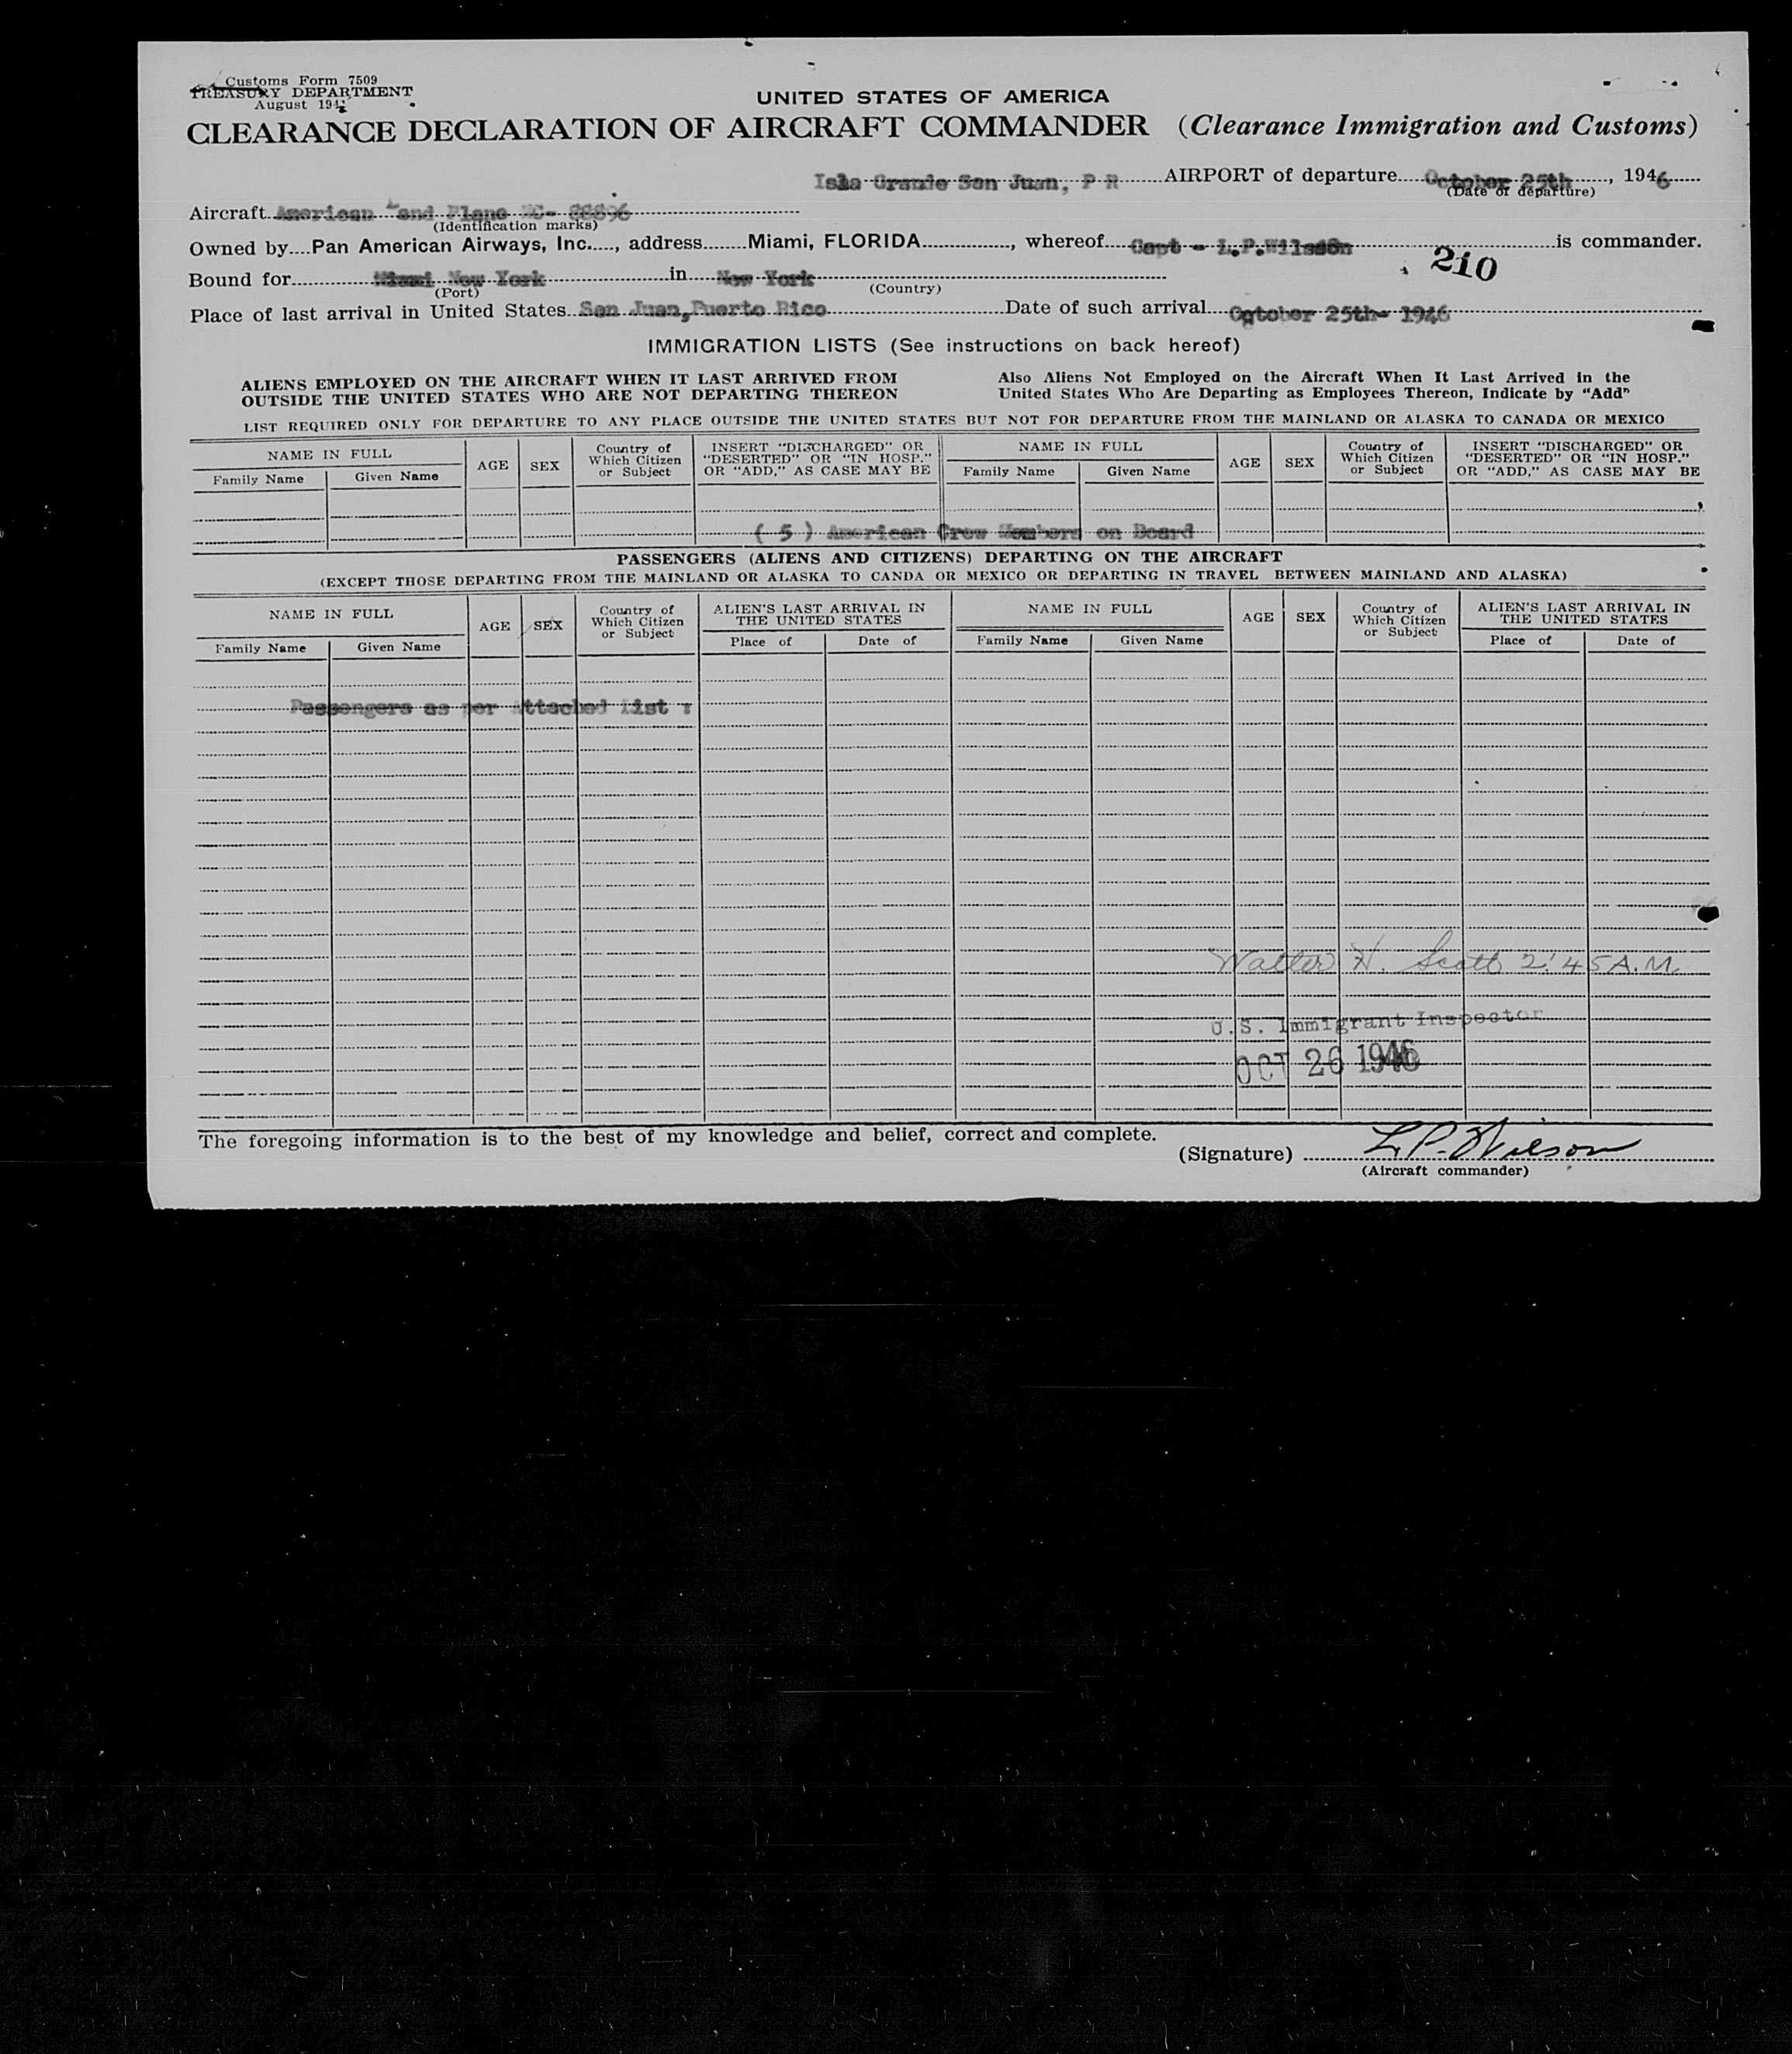 Customs Form 7509
TREASURY DEPARTMENT
August 194
UNITED STATES OF AMERICA
CLEARANCE DECLARATION OF AIRCRAFT COMMANDER (Clearance Immigration and Customs)
Isla Grande San Juan, P R AIRPORT of departure October 25th, 1946
(Date of departure)
Aircraft American Land Plane NC- 88896
(Identification marks)
Owned by Pan American Airways, Inc., address Miami, FLORIDA, whereof Capt - L.P.Wilson is commander.
210
Bound for Miami New York in New York
(Port) (Country)
Place of last arrival in United States San Juan, Puerto Rico Date of such arrival October 25th- 1946
IMMIGRATION LISTS (See instructions on back hereof)
ALIENS EMPLOYED ON THE AIRCRAFT WHEN IT LAST ARRIVED FROM Also Aliens Not Employed on the Aircraft When It Last Arrived in the
OUTSIDE THE UNITED STATES WHO ARE NOT DEPARTING THEREON United States Who Are Departing as Employees Thereon, Indicate by "Add"
LIST REQUIRED ONLY FOR DEPARTURE TO ANY PLACE OUTSIDE THE UNITED STATES BUT NOT FOR DEPARTURE FROM THE MAINLAND OR ALASKA TO CANADA OR MEXICO
NAME IN FULL AGE SEX Country of Which Citizen or Subject INSERT "DISCHARGED" OR "DESERTED" OR "IN HOSP." OR "ADD," AS CASE MAY BE NAME IN FULL AGE SEX Country of Which Citizen or Subject INSERT "DISCHARGED" OR "DESERTED" OR "IN HOSP." OR "ADD," AS CASE MAY BE
Family Name Given Name Family Name Given Name
( 5 ) American Crew Members on Board
PASSENGERS (ALIENS AND CITIZENS) DEPARTING ON THE AIRCRAFT
(EXCEPT THOSE DEPARTING FROM THE MAINLAND OR ALASKA TO CANDA OR MEXICO OR DEPARTING IN TRAVEL BETWEEN MAINLAND AND ALASKA)
NAME IN FULL AGE SEX Country of Which Citizen or Subject ALIEN'S LAST ARRIVAL IN THE UNITED STATES NAME IN FULL AGE SEX Country of Which Citizen or Subject ALIEN'S LAST ARRIVAL IN THE UNITED STATES
Family Name Given Name Place of Date of Family Name Given Name Place of Date of
Passengers as per Attached List :
Walter H. Scott 2:45 A.M.
U.S. Immigrant Inspector
OCT 26 1946
The foregoing information is to the best of my knowledge and belief, correct and complete.
(Signature) L.P. Wilson
(Aircraft commander)